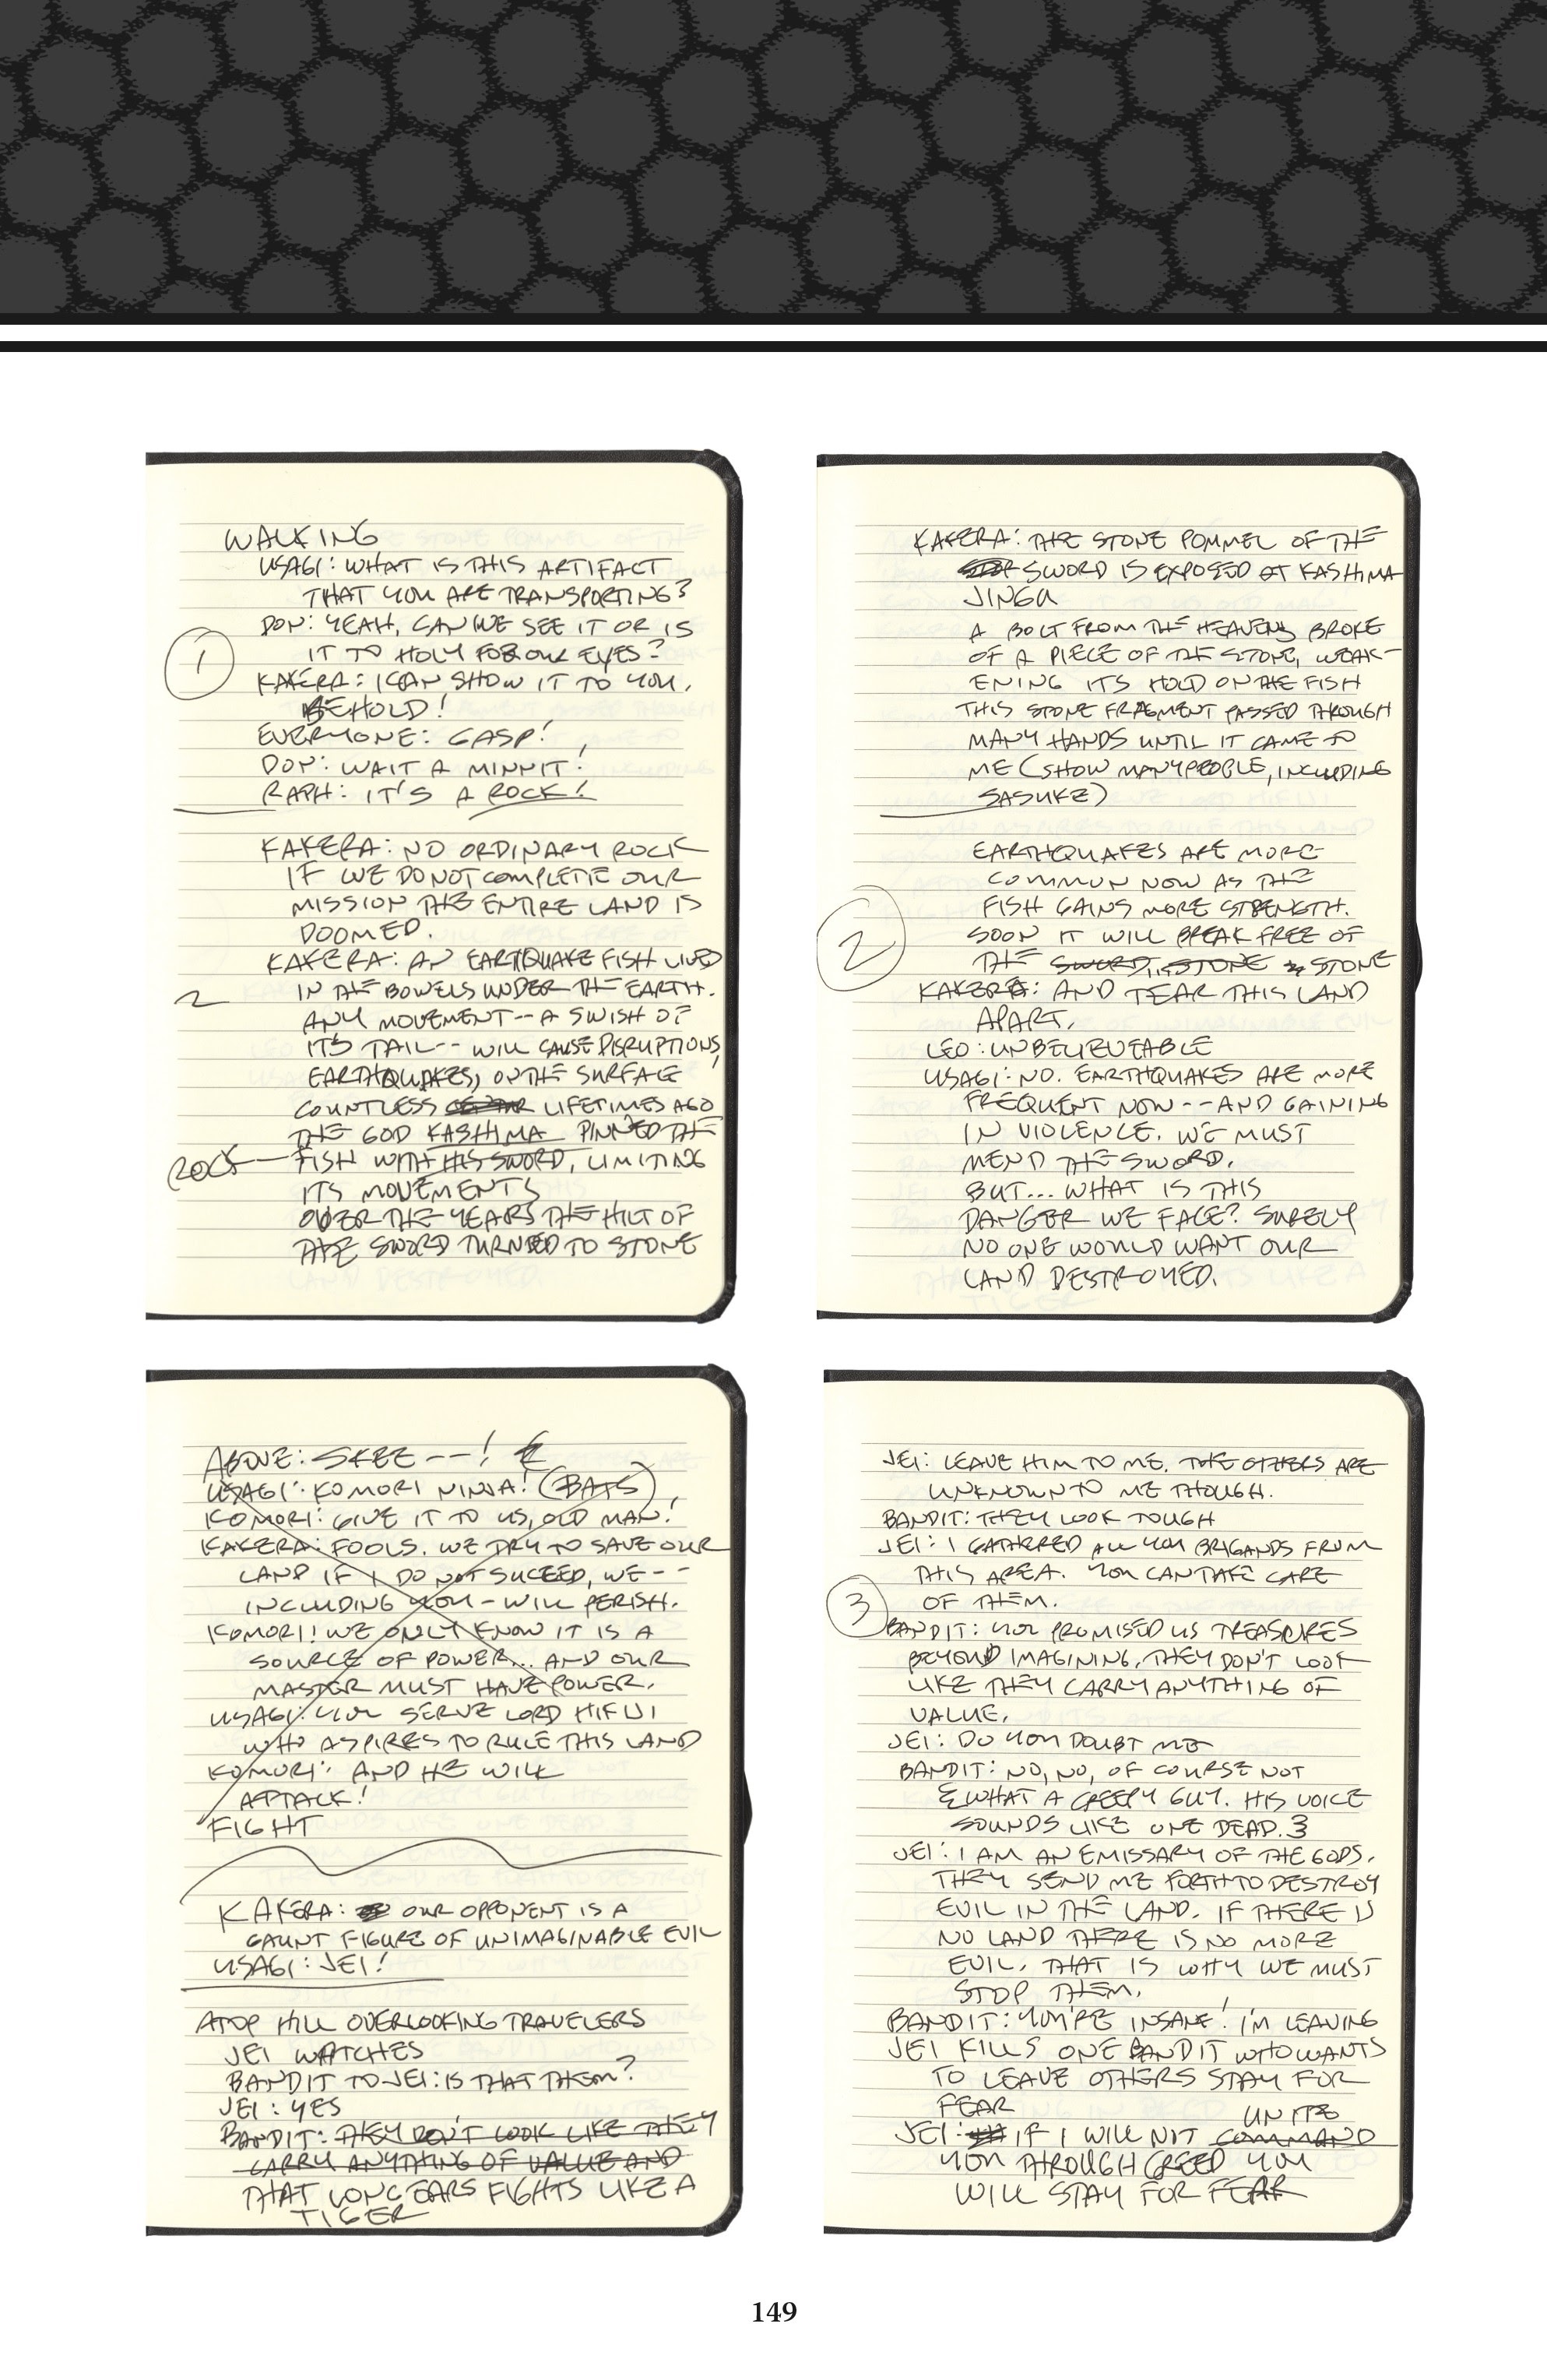 WALKING
USAGI: WHAT IS THIS ARTIFACT
THAT YOU ARE TRANSPORTING?
DON: YEAH, CAN WE SEE IT OR IS
IT TO HOLY FOR OUR EYES?
1
KAKERA: I CAN SHOW IT TO YOU.
BEHOLD!
EVERYONE: GASP!
DON: WAIT A MINNIT!
RAPH: IT'S A ROCK!
KAKERA: NO ORDINARY ROCK
IF WE DO NOT COMPLETE OUR
MISSION THE ENTIRE LAND IS
DOOMED.
KAKERA: AN EARTHQUAKE FISH LIVED
2 IN THE BOWELS UNDER THE EARTH.
ANY MOVEMENT -- A SWISH OF
IT'S TAIL -- WILL CAUSE DISRUPTIONS,
EARTHQUAKES, ON THE SURFACE
COUNTLESS LIFETIMES AGO
THE GOD KASHIMA PINNED THE
ROCK FISH WITH HIS SWORD, LIMITING
ITS MOVEMENTS
OVER THE YEARS THE HILT OF
THE SWORD TURNED TO STONE
KAKERA: THE STONE POMMEL OF THE
SWORD IS EXPOSED AT KASHIMA
JINGU
A BOLT FROM THE HEAVENS BROKE
OF A PIECE OF THE STONE, WEAK-
ENING ITS HOLD ON THE FISH
THIS STONE FRAGMENT PASSED THROUGH
MANY HANDS UNTIL IT CAME TO
ME (SHOW MANY PEOPLE, INCLUDING
SASUKE)
EARTHQUAKES ARE MORE
COMMUN NOW AS THE
FISH GAINS MORE STRENGTH.
2
SOON IT WILL BREAK FREE OF
THE SWORD, STONE STONE
KAKERA: AND TEAR THIS LAND
APART.
LEO: UNBELIEVEABLE
USAGI: NO. EARTHQUAKES ARE MORE
FREQUENT NOW -- AND GAINING
IN VIOLENCE. WE MUST
MEND THE SWORD.
BUT... WHAT IS THIS
DANGER WE FACE? SURELY
NO ONE WOULD WANT OUR
LAND DESTROYED.
ABOVE: SKEE --!
USAGI: KOMORI NINJA! (BATS)
KOMORI: GIVE IT TO US, OLD MAN!
KAKERA: FOOLS. WE TRY TO SAVE OUR
LAND IF I DO NOT SUCEED, WE --
INCLUDING YOU - WILL PERISH.
KOMORI! WE ONLY KNOW IT IS A
SOURCE OF POWER... AND OUR
MASTER MUST HAVE POWER.
USAGI: YOU SERVE LORD HIFUI
WHO ASPIRES TO RULE THIS LAND
KOMORI: AND HE WILL
ATTACK!
FIGHT
KAKERA: OUR OPPONENT IS A
GAUNT FIGURE OF UNIMAGINABLE EVIL
USAGI: JEI!
ATOP HILL OVERLOOKING TRAVELERS
JEI WATCHES
BANDIT TO JEI: IS THAT THEM?
JEI: YES
BANDIT: THEY DON'T LOOK LIKE THEY
CARRY ANYTHING OF VALUE AND
THAT LONG EARS FIGHTS LIKE A
TIGER
JEI: LEAVE HIM TO ME. THE OTHERS ARE
UNKNOWN TO ME THOUGH.
BANDIT: THEY LOOK TOUGH
JEI: I GATHERED ALL YOU BRIGANDS FROM
THIS AREA. YOU CAN TAKE CARE
OF THEM.
3
BANDIT: YOU PROMISED US TREASURES
BEYOND IMAGINING, THEY DON'T LOOK
LIKE THEY CARRY ANYTHING OF
VALUE.
JEI: DO YOU DOUBT ME
BANDIT: NO, NO, OF COURSE NOT
{WHAT A CREEPY GUY. HIS VOICE
SOUNDS LIKE ONE DEAD.}
JEI: I AM AN EMISSARY OF THE GODS.
THEY SEND ME FORTH TO DESTROY
EVIL IN THE LAND. IF THERE IS
NO LAND THERE IS NO MORE
EVIL. THAT IS WHY WE MUST
STOP THEM.
BANDIT: YOU'RE INSANE! I'M LEAVING
JEI KILLS ONE BANDIT WHO WANTS
TO LEAVE OTHERS STAY FOR
FEAR
UNITE
JEI: IF I WILL NOT COMMAND
YOU THROUGH GREED YOU
WILL STAY FOR FEAR
149